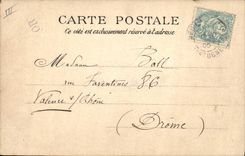 III
CARTE POSTALE
Ce côté est exclusivement réservé à l'adresse
Madame Ball
rue Farentines 86
Valence s/Rhône
(Drôme)